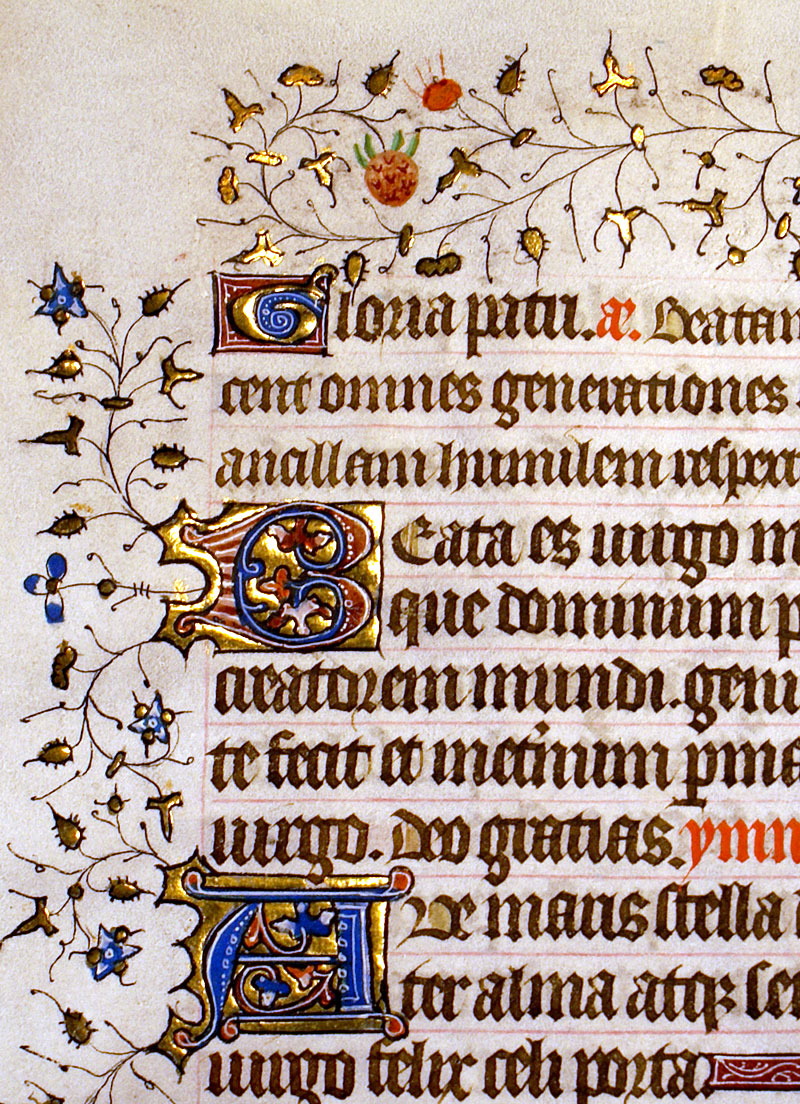 Gloria patri. æ. Beatam
cent omnes generationes
ancillam humilem respexi
BEata es uirgo m
que dominum p
creatorem mundi. geni
te fecit et inet'num ꝑma
uirgo. Deo gratias. ymn
AVe maris stella
ter alma atqꝫ se
uirgo felix celi porta.